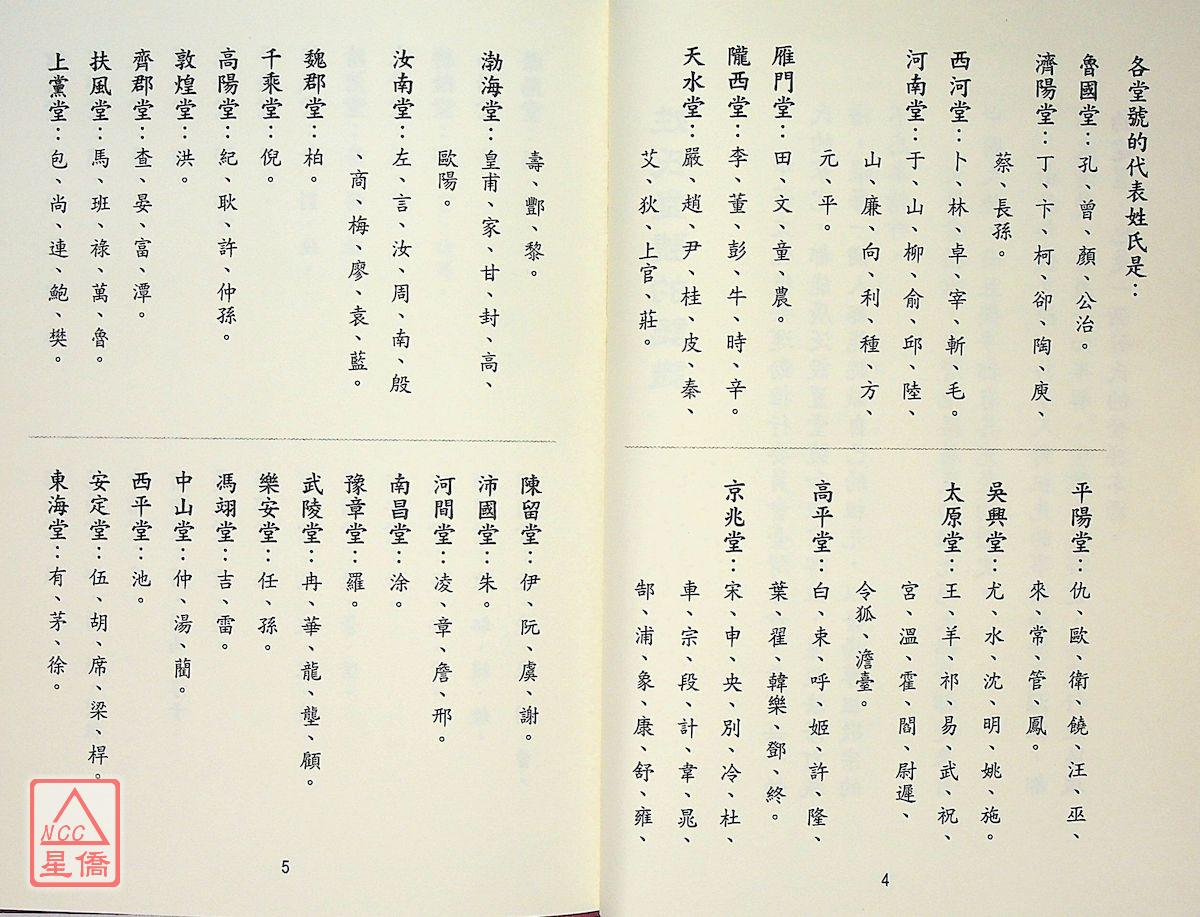 各堂號的代表姓氏是：
魯國堂：孔、曾、顏、公冶。
濟陽堂：丁、卞、柯、郤、陶、庾、
蔡、長孫。
西河堂：卜、林、卓、宰、靳、毛。
河南堂：于、山、柳、俞、邱、陸、
山、廉、向、利、種、方、
元、平。
雁門堂：田、文、童、農。
隴西堂：李、董、彭、牛、時、辛。
天水堂：嚴、趙、尹、桂、皮、秦、
艾、狄、上官、莊。
平陽堂：仇、歐、衛、饒、汪、巫、
來、常、管、鳳。
吳興堂：尤、水、沈、明、姚、施。
太原堂：王、羊、祁、易、武、祝、
宮、溫、霍、閻、尉遲、
令狐、澹臺。
高平堂：白、束、呼、姬、許、隆、
葉、翟、韓樂、鄧、終。
京兆堂：宋、申、央、別、冷、杜、
車、宗、段、計、韋、晁、
郜、浦、象、康、舒、雍、
4
壽、酆、黎。
渤海堂：皇甫、家、甘、封、高、
歐陽。
汝南堂：左、言、汝、周、南、殷
、商、梅、廖、袁、藍。
魏郡堂：柏。
千乘堂：倪。
高陽堂：紀、耿、許、仲孫。
敦煌堂：洪。
齊郡堂：查、晏、富、潭。
扶風堂：馬、班、祿、萬、魯。
上黨堂：包、尚、連、鮑、樊。
陳留堂：伊、阮、虞、謝。
沛國堂：朱。
河間堂：凌、章、詹、邢。
南昌堂：涂。
豫章堂：羅。
武陵堂：冉、華、龍、龔、顧。
樂安堂：任、孫。
馮翊堂：吉、雷。
中山堂：仲、湯、藺。
西平堂：池。
安定堂：伍、胡、席、梁、桿。
東海堂：有、茅、徐。
5
NCC
星僑